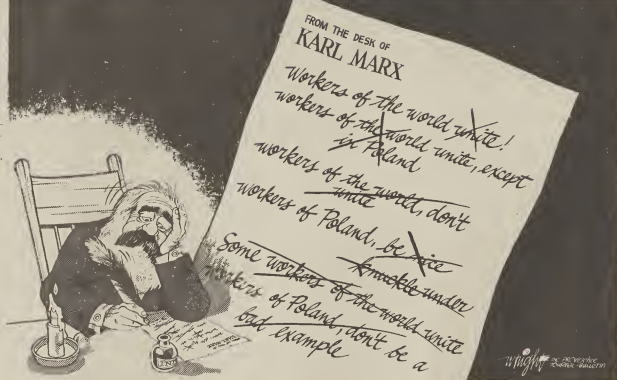 FROM THE DESK OF
KARL MARX
Workers of the world unite!
workers of the world unite, except
in Poland
workers of the world, don't
unite
workers of Poland, be nice
knuckle under
Some workers of the world unite
workers of Poland, don't be a
bad example
INK
wright